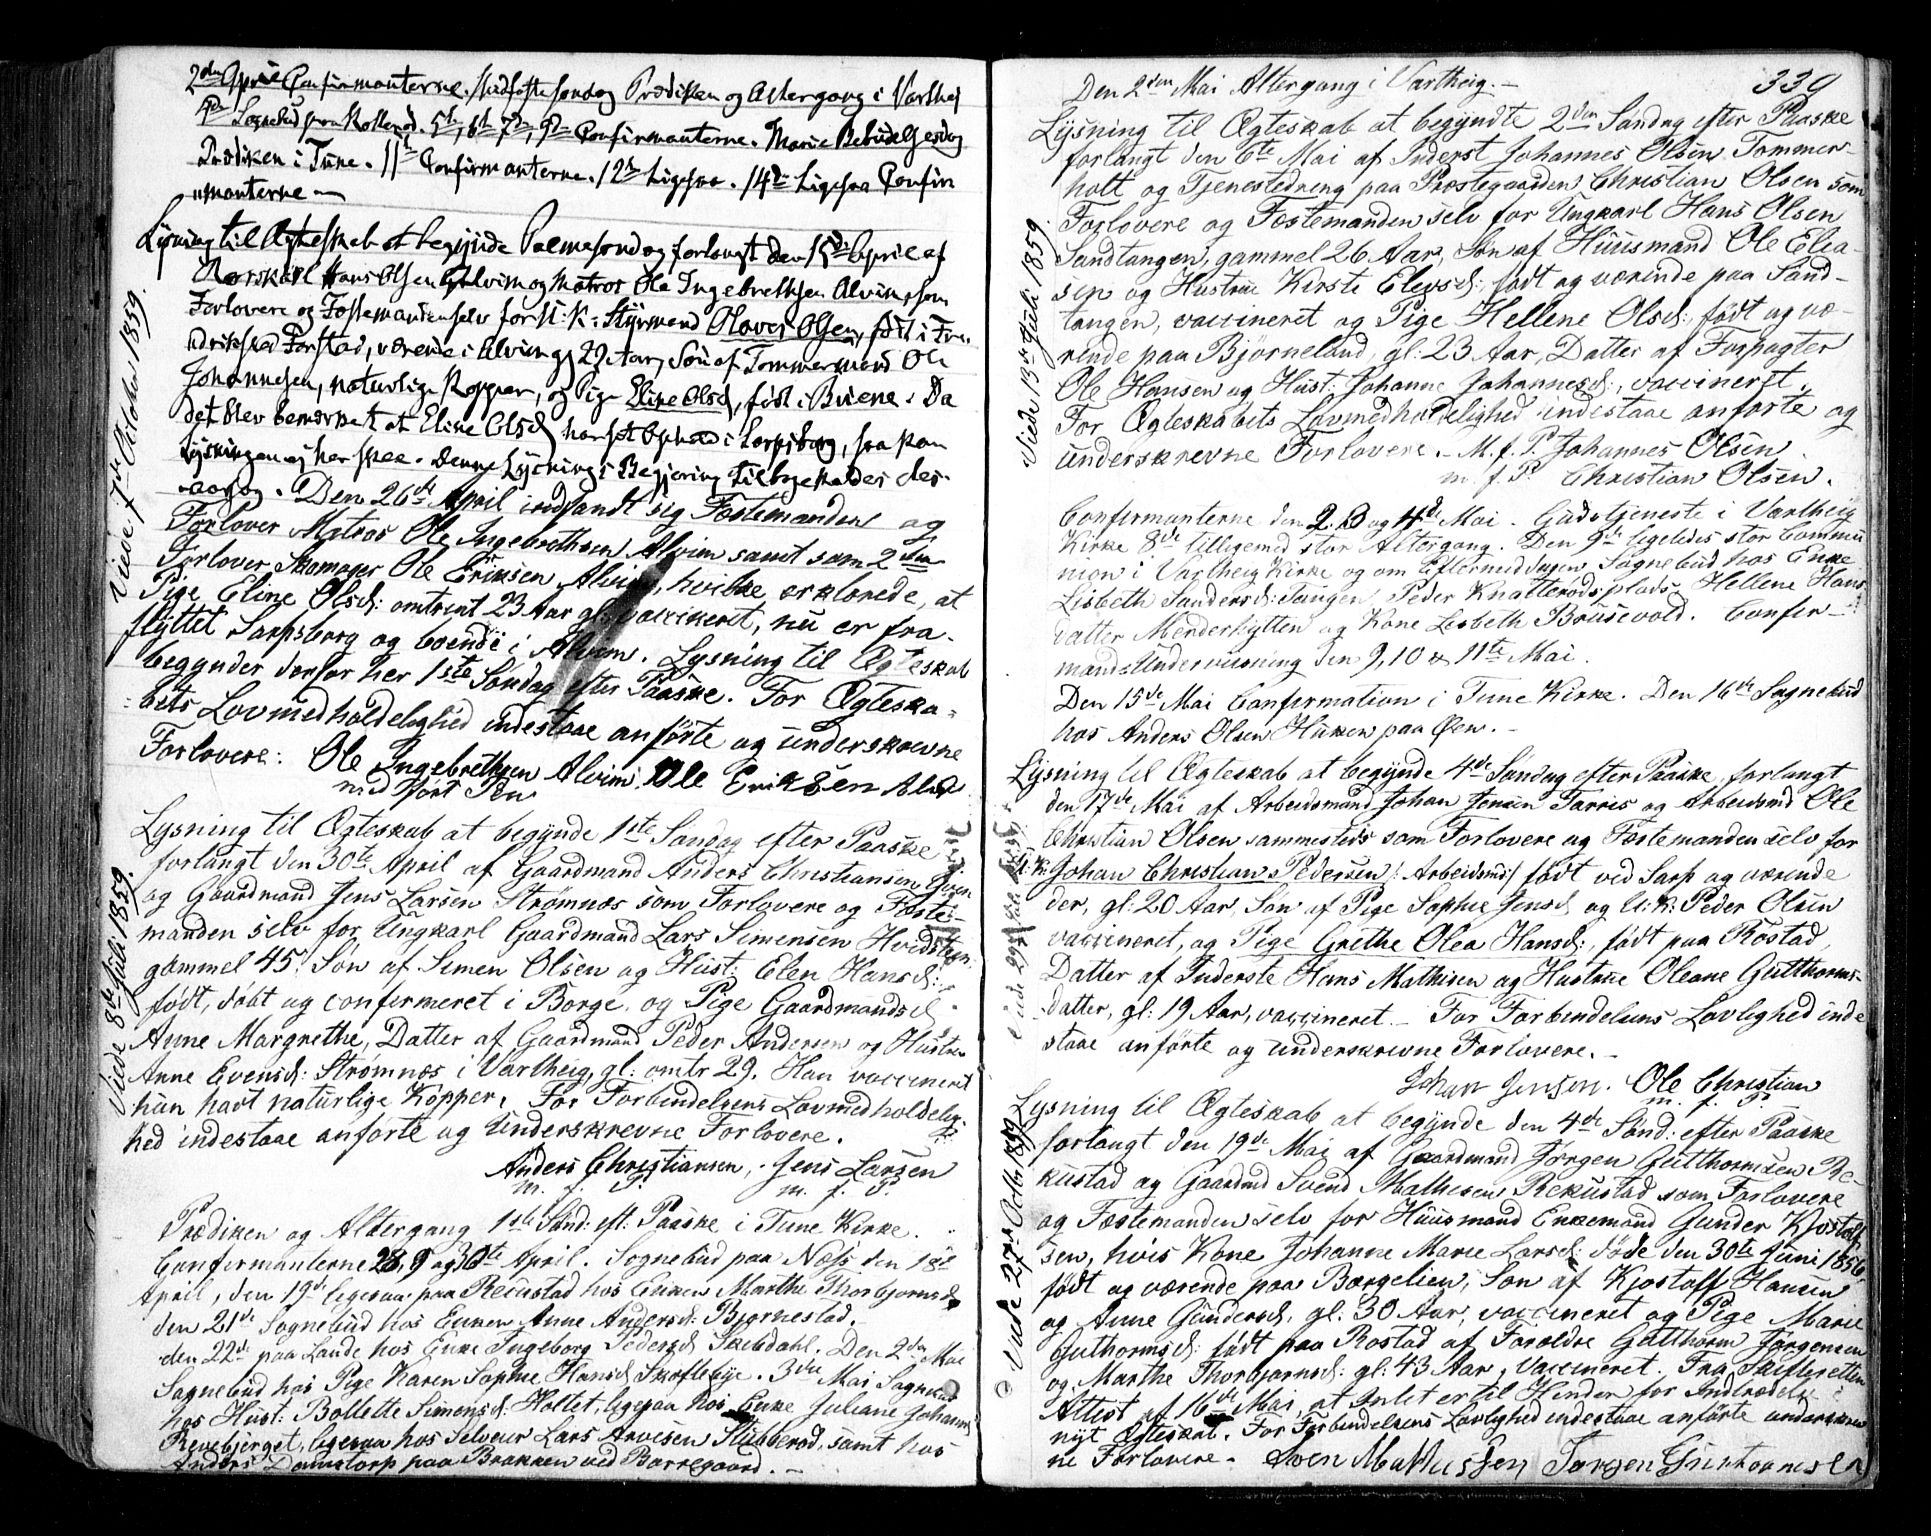 2den April Confirmanterne. Skudfastesøndag Prædiken og Altergang i Varthej
5te, 6te, 7de, 9de Confirmanterne. Marie Bebudelsesdag
Prædiken i Tune. 11te Confirmanterne. 12te Ligesaa. 14de Ligesaa Confir
manterne —
Lysning til Ægteskab at begynde Palmesøndag forlangt den 15de April af
Hans Olsen Alvim og Matros Ole Ingebrethsen Alvim, som
Forlovere og Fæstemanden selv for U: K: Styrmand Olaves Olsen, født i Fre-
drikstad Forstad, værende i Alvim gl 29 Aar, Søn af Tømmermand Ole
Johannesen, naturlige Kopper, og Pige Eline Olsd, født i Biene. Da
det blev bemærket at Eline Olsd har sit Ophold i Sarpsborg, saa kan
Lysningen ej her skee. Denne Lysnings Begjering tilbageholdes des-
aarsag. Den 26de April indfandt sig Fæstemanden og
Forlover Matros Ole Ingebrethsen Alvim samt som 2den
Forlover Skomager Ole Eriksen Alvim, hvilke erklærede, at
Pige Eline Olsd: omtrent 23 Aar gl: vaccineret, nu er fra-
flyttet Sarpsborg og boende i Alvim. Lysning til Ægteskab
begynder derfor her 1ste Søndag efter Paaske. For Ægteska-
bets Lovmedholdelighed indestaae anførte og underskrevne
Forlovere: Ole Ingebrethsen Alvim. Ole Eriksen Alvim
med ført Pen
Viede 7de October 1859.
Lysning til Ægteskab at begynde 1ste Søndag efter Paaske
forlangt den 30te April af Gaardmand Anders Christiansen
og Gaardmand Jens Larsen Strømnæs som Forlovere og Fæste-
manden selv for Ungkarl Gaardmand Lars Simensen Hvidsteen
gammel 45. Søn af Simen Olsen og Hust: Elen Hansd:
født, døbt og confirmeret i Borge, og Pige Gaardmandsd
Anne Margrethe, Datter af Gaardmand Peder Andersen og Hustru
Anne Evensd: Strømnæs i Vartheig, gl: omtr 29. Han vaccineret
hun havt naturlige Kopper. For Forbindelsens Lovmedholdelig-
hed indestaae anførte og Underskrevne Forlovere.
Anders Christiansen, Jens Larsen
m. f. P. m. f. P.
Viede 8de Juli 1859.
Prædiken og Altergang 1ste Sønd: eft: Paaske i Tune Kirke.
Confirmanterne 28, 9 og 30te April. Sognebud paa Næss den 18de
April, den 19de ligesaa paa Recustad hos Enken Marthe Thorbjørnsd
den 21de Sognebud hos Enken Anne Andersd: Bjørnestad.
den 22de paa Lande hos Enke Ingeborg Pedersd Skibdahl. Den 2den Mai
Sognebud hos Pige Karen Sophie Hansd Skoftebye. 3die Mai Sognebud
hos Hust: Bollette Simensd: Holtet, ligesaa hos Enke Juliane Johannesd
Revebjerget, ligesaa hos Selveier Lars Arvesen Stubberød, samt hos
Anders Domstorp paa Brakken ved Borregaard. —
339
Den 2den Mai Altergang i Vartheig. —
Lysning til Ægteskab at begyndte 2den Søndag efter Paaske
forlangt den 6te Mai af Inderst Johannes Olsen Tommer-
holt og Tjenestedreng paa Præstegaarden Christian Olsen som
Forlovere og Fæstemanden selv for Ungkarl Hans Olsen
Sandtangen, gammel 26 Aar, Søn af Huusmand Ole Elia-
sen og Hustrue Kirsti Elevsd: født og værende paa Sand-
tangen, vaccineret og Pige Hellene Olsd: født og væ-
rende paa Bjørneland, gl: 23 Aar, Datter af Forpagter
Ole Hansen og Hust: Johanne Johannesd:, vaccineret.
For Ægteskabets Lovmedholdelighed indestaae anførte og
underskrevne Forlovere. — M. f. P. Johannes Olsen
m. f. P. Christian Olsen.
Viede 13de Juli 1859.
Confirmanterne den 2. 3 og 4de Mai. Gudstjeneste i Vartheig
Kirke 8de tilligemed stor Altergang. Den 9de ligeledes stor Commu
nion i Vartheig Kirke og om Eftermiddagen Sognebud hos Enke
Lisbeth Sandersd: Tangen, Peder Knatterødsplads, Hellene Hans
datter Menderhytten og Kone Lisbeth Brusevold. Confir-
mandsUnderviisning den 9, 10 & 11te Mai.
Den 15de Mai Confirmation i Tune Kirke. Den 16de Sognebud
hos Anders Olsen Huken paa Øen. —
Lysning til Ægteskab at begynde 4de Søndag efter Paaske, forlangt
den 17de Mai af Arbeidsmand Johan Jensen Tarris og Arbeidsmd Ole
Christian Olsen sammesteds som Forlovere og Fæstemanden selv for
U: K: Johan Christian Pedersen (: Arbeidsmd) født ved Sarp og værende
der, gl: 20 Aar, Søn af Pige Sophie Jensd og U: K: Peder Olsen
vaccineret, og Pige Grethe Olea Hansd:, født paa Rostad,
Datter af Inderste Hans Mathisen og Hustrue Oleane Gutthorms-
datter, gl: 19 Aar, vaccineret. — For Forbindelsens Lovlighed inde
staae anførte og underskrevne Forlovere. —
Johan Jensen. Ole Christian
m. f. P.
Lysning til Ægteskab at begynde den 4de Sønd: efter Paaske
forlangt den 19de Mai af Gaardmand Jørgen Gutthormsen Re-
kustad og Gaardmd Svend Mathisen Rekustad som Forlovere
og Fæstemanden selv for Huusmand Enkemand Gunder Kjostolf-
sen, hvis Kone Johanne Marie Larsd: døde den 30te Juni 1856,
født og værende paa Borgelien, Søn af Kjostolf Hansen
og Anne Gundersd, gl. 30 Aar, vaccineret og Pige Marie
Guthormsd: født paa Rostad af Forældre Gutthorm Jørgensen
og Marthe Thorbjørnsd: gl: 43 Aar, Vaccineret. Fra Skifteretten
Attest af 16de Mai, at Intet er til Hinder for Indtrædelse i
nyt Ægteskab. For Forbindelsens Lovlighed indestaae anførte underskrev
ne Forlovere. — Sven Mathissen Jørgen Guthormsen
Viede 27de Octbr 1859